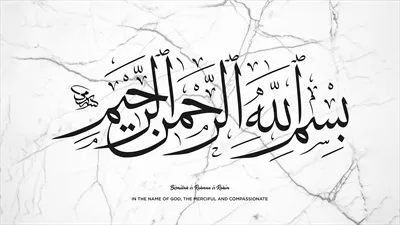 بِسْمِ اللَّهِ الرَّحْمَٰنِ الرَّحِيمِ
Bismillah ir Rahman ir Rahim
IN THE NAME OF GOD, THE MERCIFUL AND COMPASSIONATE